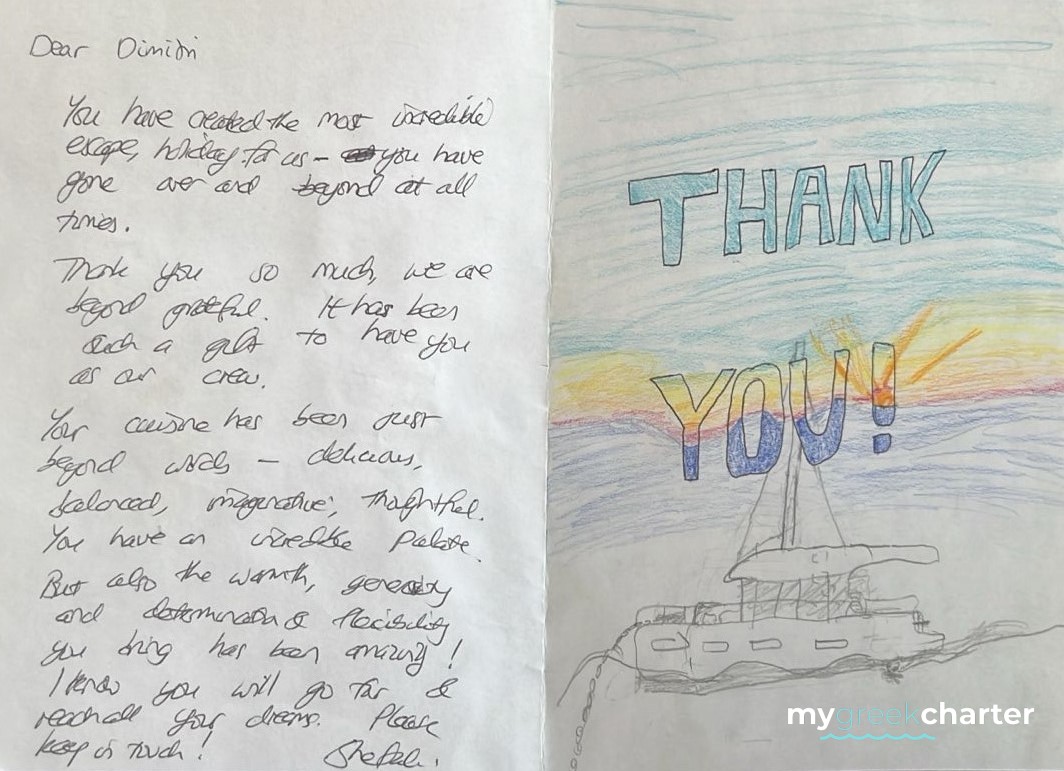 Dear Dimitri
You have created the most incredible
escape, holiday for us - you have
gone over and beyond at all
times.
Thank you so much, we are
beyond grateful. It has been
such a gift to have you
as our crew.
Your cuisine has been just
beyond words - delicious,
balanced, imaginative, thoughtful.
You have an incredible Palate.
But also the warmth, generosity
and determination & flexibility
you bring has been amazing!
I know you will go far &
reach all your dreams. Please
keep in touch!
THANK
YOU!
mygreekcharter